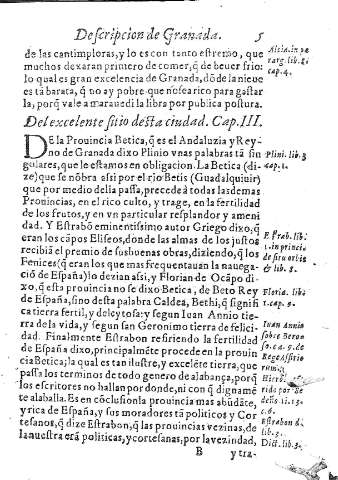 Descripcion de Granada. 5
de las cantimploras, y lo es con tanto estremo, que
muchos dexaran primero de comer, q̃ de beuer frio:
lo qual es gran excelencia de Granada, dõde la nieue
es tã barata, q̃ no ay pobre que no sea rico para gastar
la, porq̃ vale a marauedi la libra por publica postura.
Del excelente sitio desta ciudad. Cap. III.
DE la Prouincia Betica, q̃ es el Andaluzia y Rey-
no de Granada dixo Plinio vnas palabras tã sin
gulares, que le estamos en obligacion. La Betica (di-
ze) que se nõbra assi por el rio Betis (Guadalquiuir)
que por medio della passa, precede à todas las demas
Prouincias, en el rico culto, y trage, en la fertilidad
de los frutos, y en vn particular resplandor y ameni
dad. Y Estrabõ eminentissimo autor Griego dixo, q̃
eran los cãpos Eliseos, donde las almas de los justos
recibiã el premio de sus buenas obras, diziendo, q̃ los
Fenices (q̃ eran los que mas frequentauan la nauega-
ciõ de España) lo dezian assi, y Florian de Ocãpo di-
xo, q̃ esta prouincia no se dixo Betica, de Beto Rey
de España, sino desta palabra Caldea, Bethi, q̃ signifi
ca tierra fertil, y deleytosa: y segun Iuan Annio tie-
rra de la vida, y segun san Geronimo tierra de felici-
dad. Finalmente Estrabon refiriendo la fertilidad
de España dixo, principalmẽte procede en la prouin
cia Betica; la qual es tan ilustre, y excelẽte tierra, que
passa los terminos de todo genero de alabança, porq̃
los escritores no hallan por donde, ni con q̃ dignamẽ
te alaballa. Es en cõclusion la prouincia mas abũdãte,
y rica de España, y sus moradores tã politicos y Cor
tesanos, q̃ dize Estrabon, q̃ las prouincias vezinas, de
la nuestra erã politicas, y cortesanas, por la vezindad,
B y tra-
cap. 4.
Plini. lib. 3
cap. 1.
Estrab. lib.
1. in princi
de situ orbis
& lib. 3.
Floria. lib.
1. cap. 9.
Iuan Annio
sobre Beroso